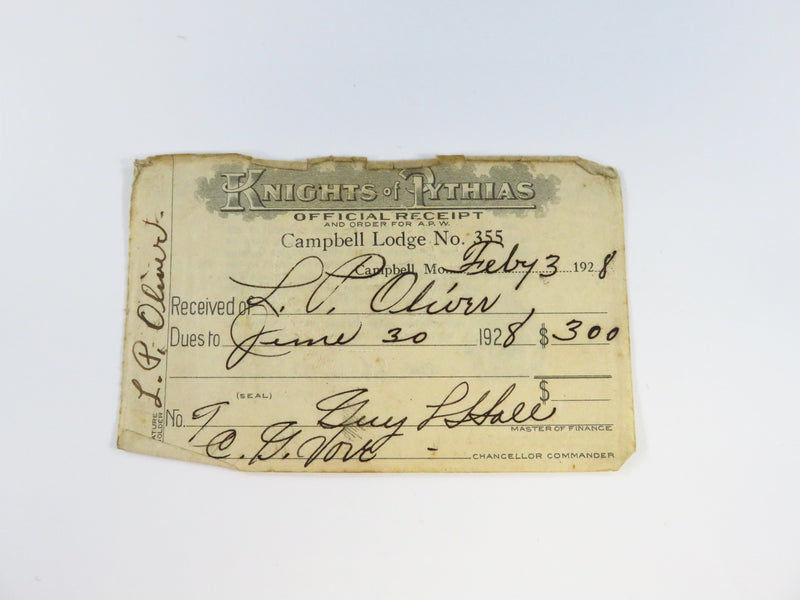 KNIGHTS of PYTHIAS
OFFICIAL RECEIPT
AND ORDER FOR A.P.W.
Campbell Lodge No. 355
Campbell, Mo. Feby 3 1928
Received of L. P. Oliver
Dues to June 30 1928 $ 300
$
(SEAL)
No. 9 Guy L Hall
MASTER OF FINANCE
C. G.
CHANCELLOR COMMANDER
L. P. Oliver.
ATURE
OLDER